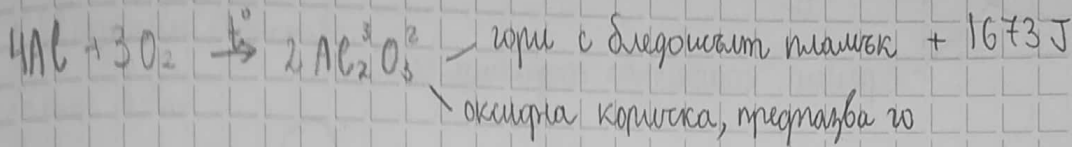 4Al + 3O₂ →t° 2Al₂³O₃² – гори с бледожълт пламък + 1673 J
оксидна коричка, предпазва го